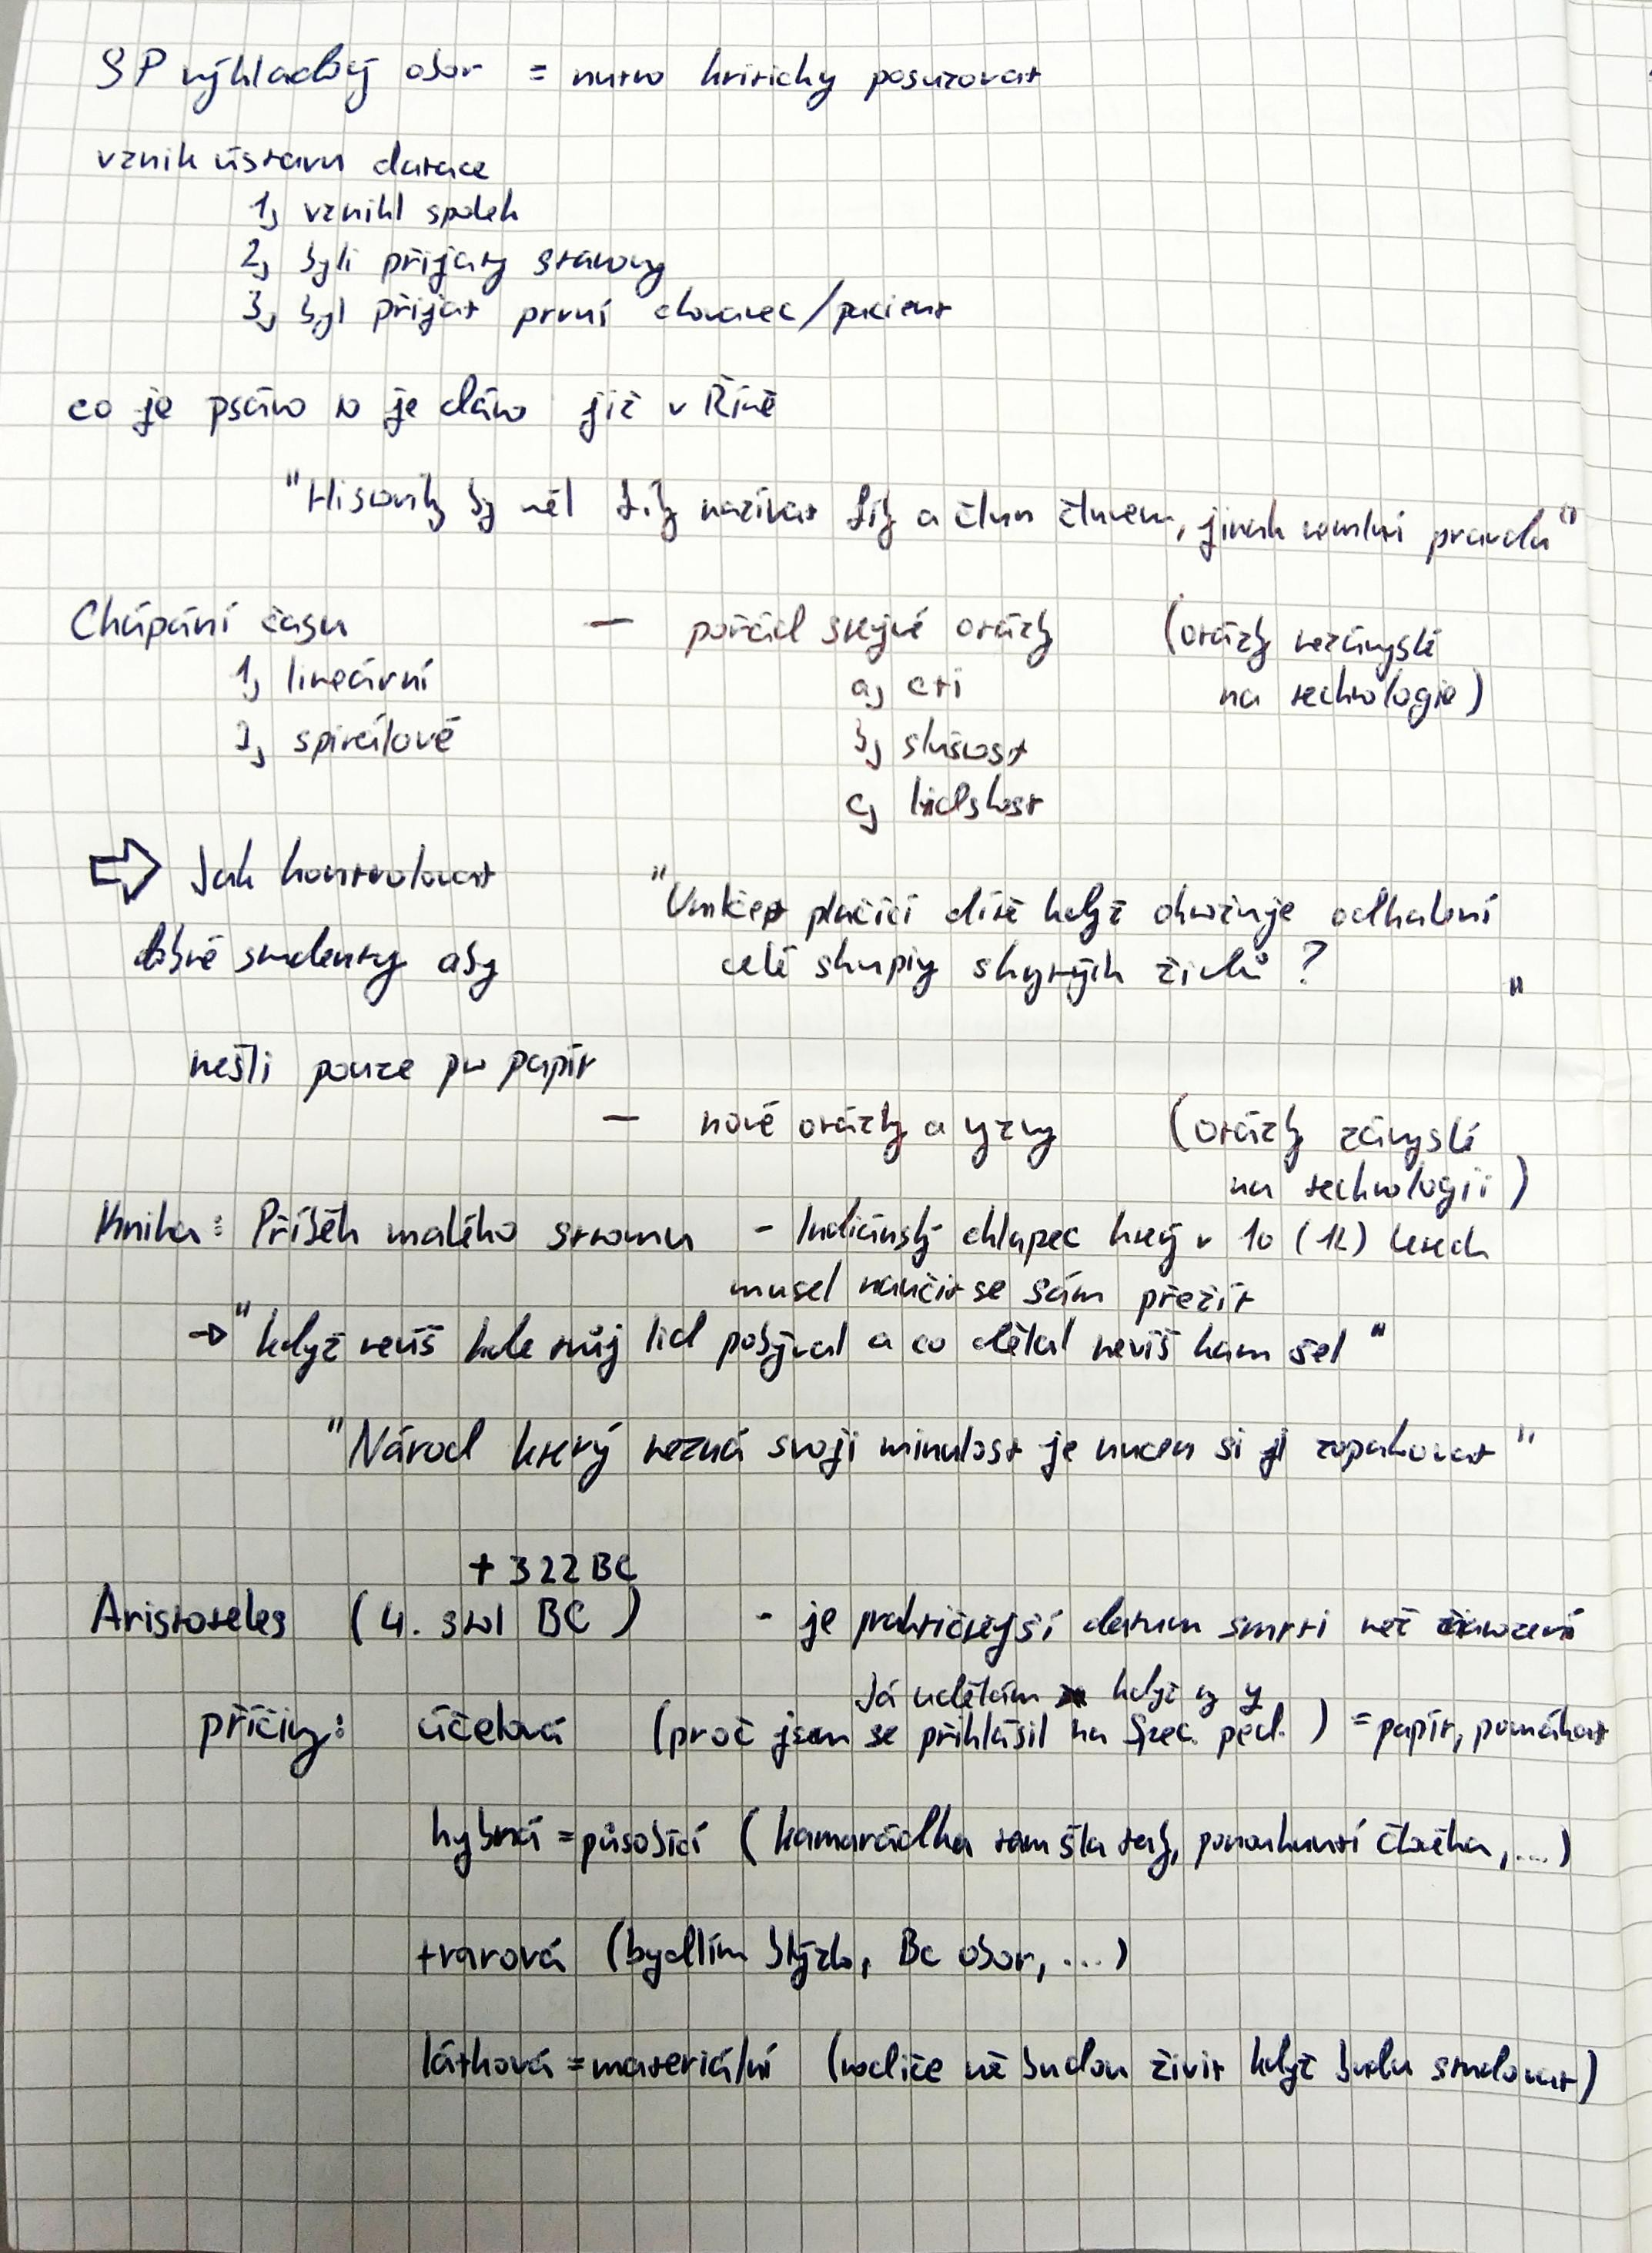 SP výkladový obor = nutno kriticky posuzovat
vznik ústavu datace
1, vznikl spolek
2, byli přijaty stanovy
3, byl přijat první chovanec/pacient
co je psáno to je dáno již v Římě
"Historik by měl fík nazívat fík a člun člunem, jinak pravda"
Chápání času
1, lineární
2, spirálově
— pořád stejné otázky (otázky nezávyslé
na technologie)
a, cti
b, slušnost
c, lidskost
⇒ Jak kontrolovat
dobré studenty aby
nešli pouze pro papír
" plačící dítě když ohrožuje odhalení
celé skupiny skrytých židů? "
— nové otázky a výzvy (otázky závyslé
na technologii)
Kniha: Příběh malého stromu - Indiánský chlapec který v 10 (12) letech
musel naučit se sám přežít
→ "když nevíš kde tvůj lid pobýval a co dělal nevíš kam šel"
"Národ který nezná svoji minulost je nucen si ji zopakovat"
+ 322 BC
Aristoteles (4. stol BC) - je praktičtější datum smrti než narození
Já udělám když ty y
příčiny: účelová (proč jsem se přihlásil na Spec. ped.) = papír, pomáhat
hybná = působící (kamarádka tam šla taky, ponouknutí člověka, ....)
tvarová (bydlím blízko, Bc obor, ...)
látková = materiální (rodiče mě budou živit když budu studovat)